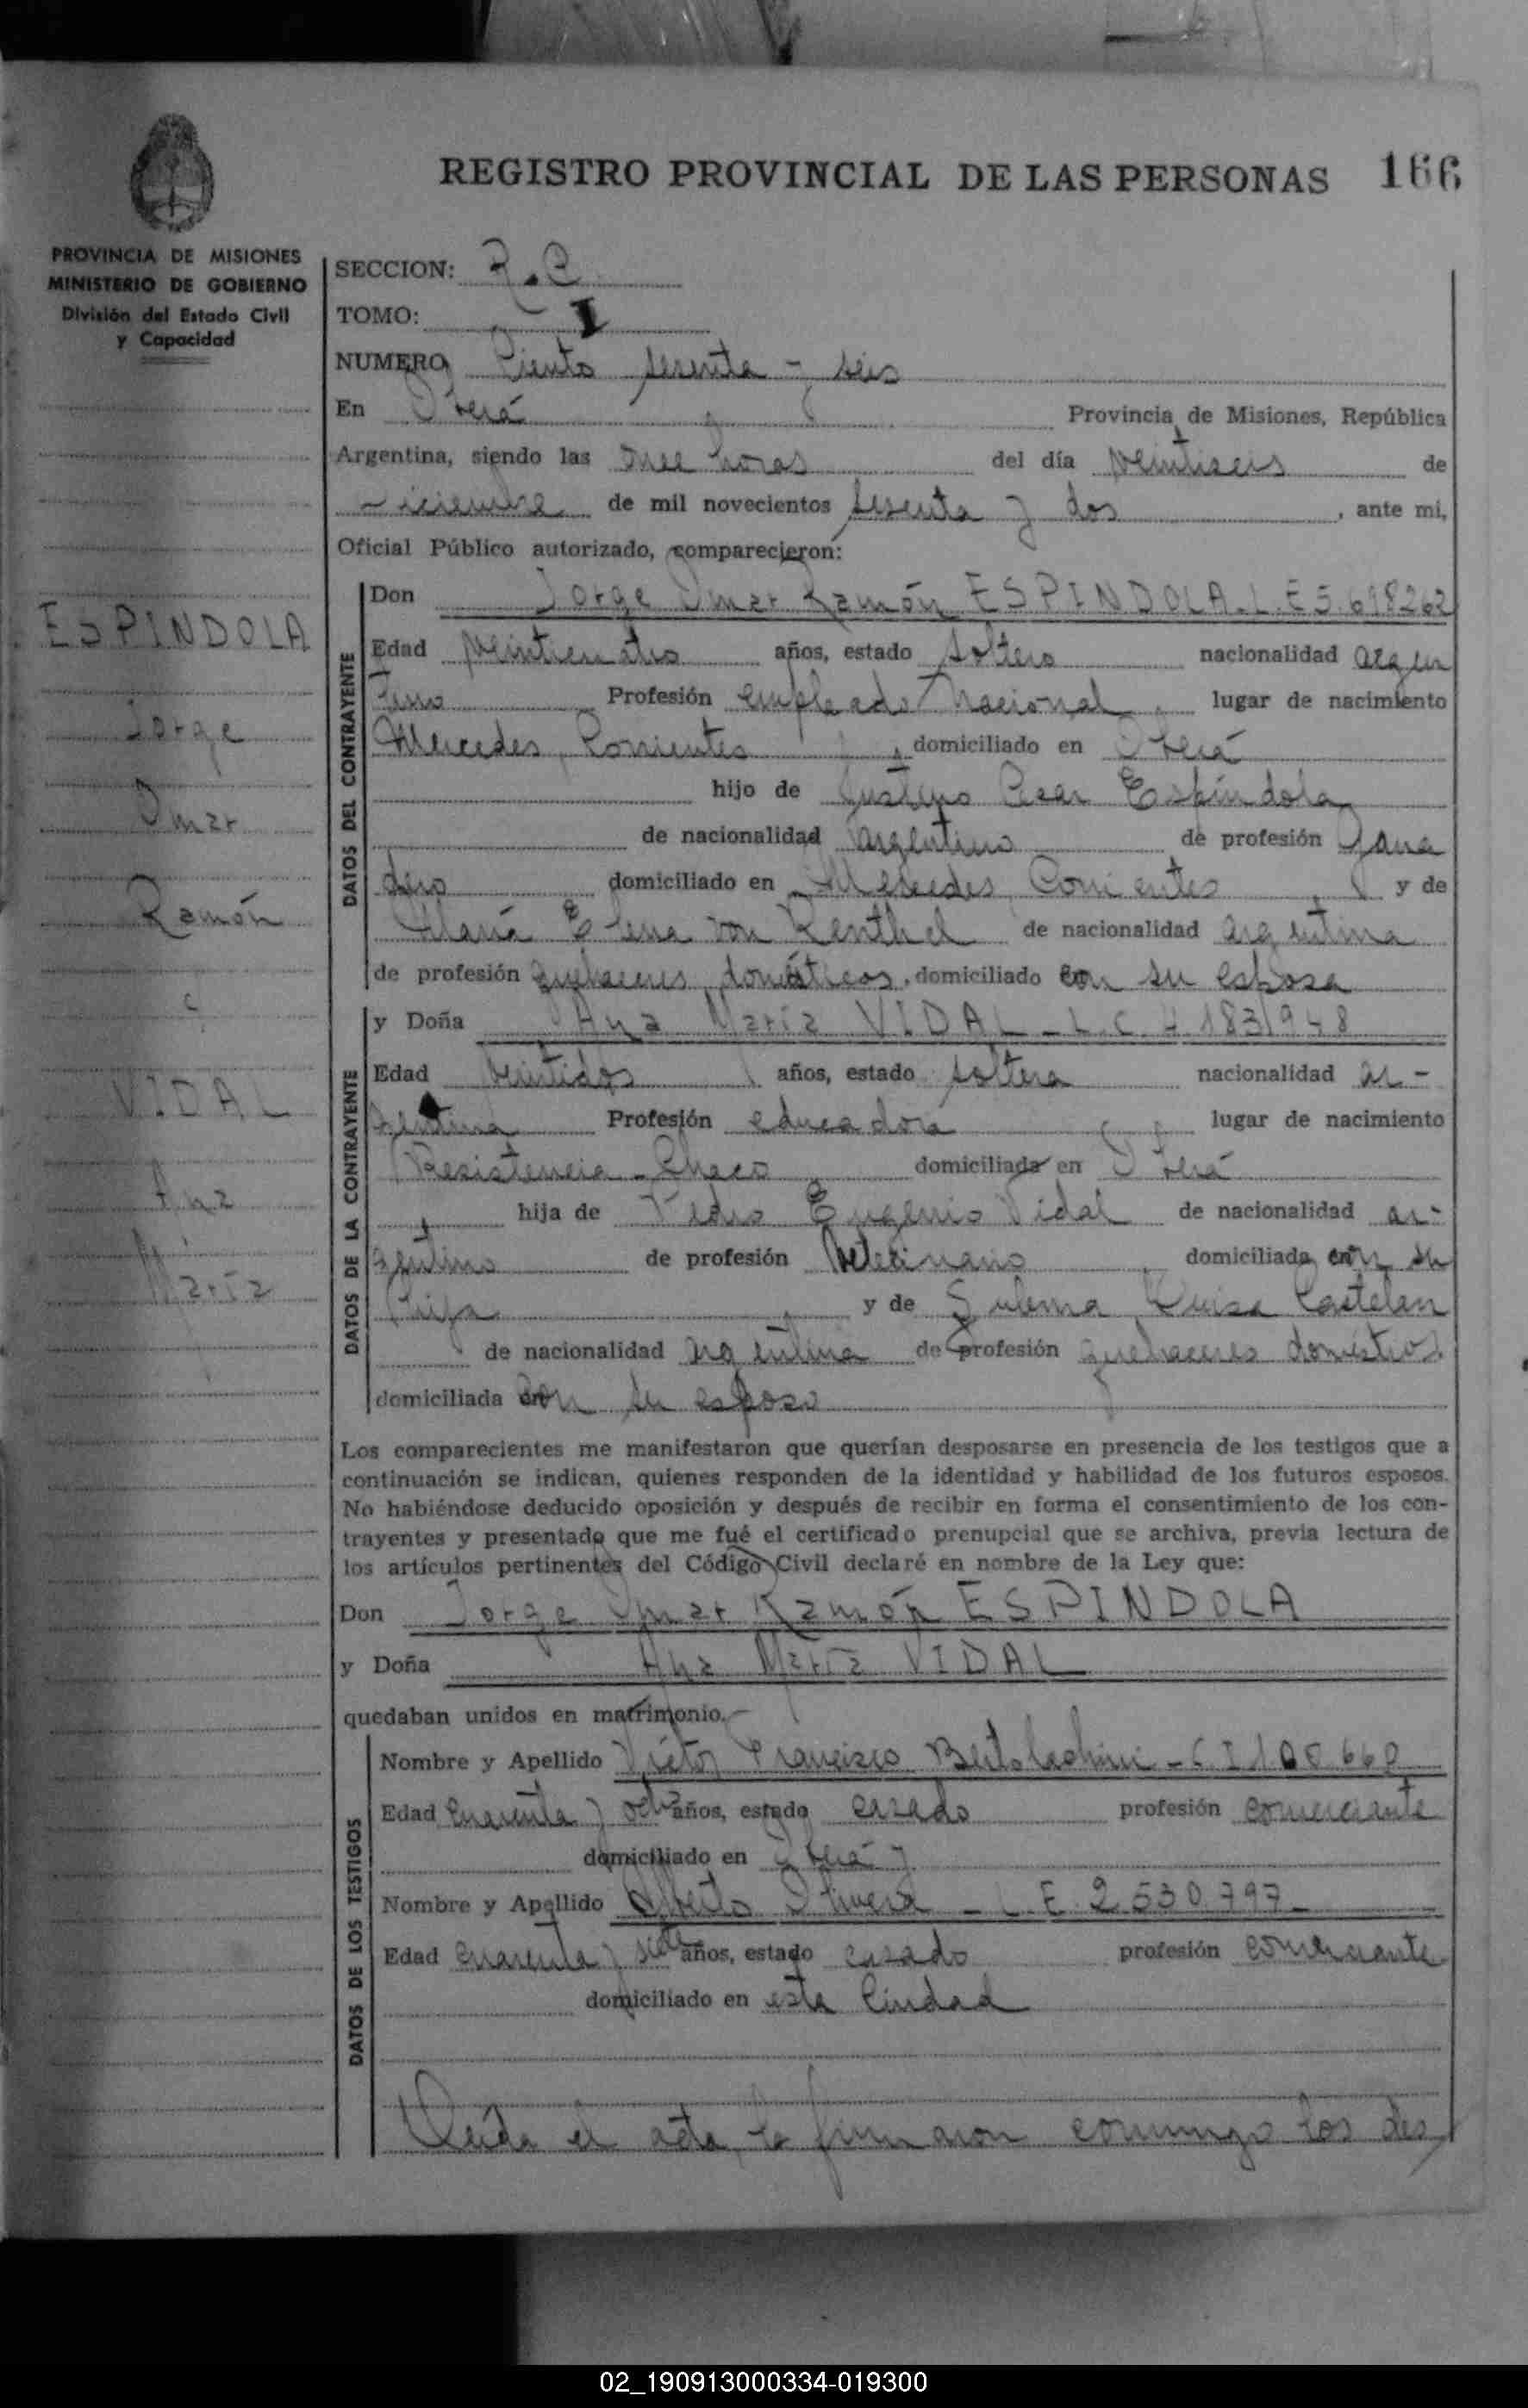 REGISTRO PROVINCIAL DE LAS PERSONAS 166
PROVINCIA DE MISIONES
MINISTERIO DE GOBIERNO
División del Estado Civil
y Capacidad
SECCION:
TOMO: I
NUMERO Ciento sesenta y seis
En Oberá Provincia de Misiones, República
Argentina, siendo las once horas del día veintiseis de
diciembre de mil novecientos sesenta y dos, ante mi,
Oficial Público autorizado, comparecieron:
ESPINDOLA
Jorge
Omar
Ramón
c
VIDAL
Ana
María
DATOS DEL CONTRAYENTE
Don Jorge Omar Ramón ESPINDOLA. L.E 5.698262
Edad veinticuatro años, estado soltero nacionalidad argen
tino Profesión empleado Nacional, lugar de nacimiento
Mercedes, Corrientes, domiciliado en Oberá
hijo de Cesar Espíndola
de nacionalidad argentino de profesión gana
dero domiciliado en Mercedes Corrientes y de
María Elena von de nacionalidad argentina
de profesión quehaceres domésticos, domiciliado con su esposa
DATOS DE LA CONTRAYENTE
y Doña Ana María VIDAL - L.C. 4.1831948
Edad veintidos años, estado soltera nacionalidad ar-
gentina Profesión educadora lugar de nacimiento
Resistencia - Chaco domiciliada en Oberá
hija de Pedro Eugenio Vidal de nacionalidad ar-
gentino de profesión Veterinario domiciliado con su
hija y de Sulema Luisa Castelan
de nacionalidad argentina de profesión quehaceres domésticos.
domiciliada con su esposo
Los comparecientes me manifestaron que querían desposarse en presencia de los testigos que a
continuación se indican, quienes responden de la identidad y habilidad de los futuros esposos.
No habiéndose deducido oposición y después de recibir en forma el consentimiento de los con-
trayentes y presentado que me fué el certificado prenupcial que se archiva, previa lectura de
los artículos pertinentes del Código Civil declaré en nombre de la Ley que:
Don Jorge Omar Ramón ESPINDOLA
y Doña Ana María VIDAL
quedaban unidos en matrimonio.-
DATOS DE LOS TESTIGOS
Nombre y Apellido Víctor Francisco - C I 100.660
Edad Cuarenta y ocho años, estado casado profesión comerciante
domiciliado en Oberá y
Nombre y Apellido Alberto Olivera - L.E. 2.530.797-
Edad Cuarenta y siete años, estado casado profesión comerciante
domiciliado en esta Ciudad
Leída el acta, la firmaron conmigo los des
02_190913000334-019300